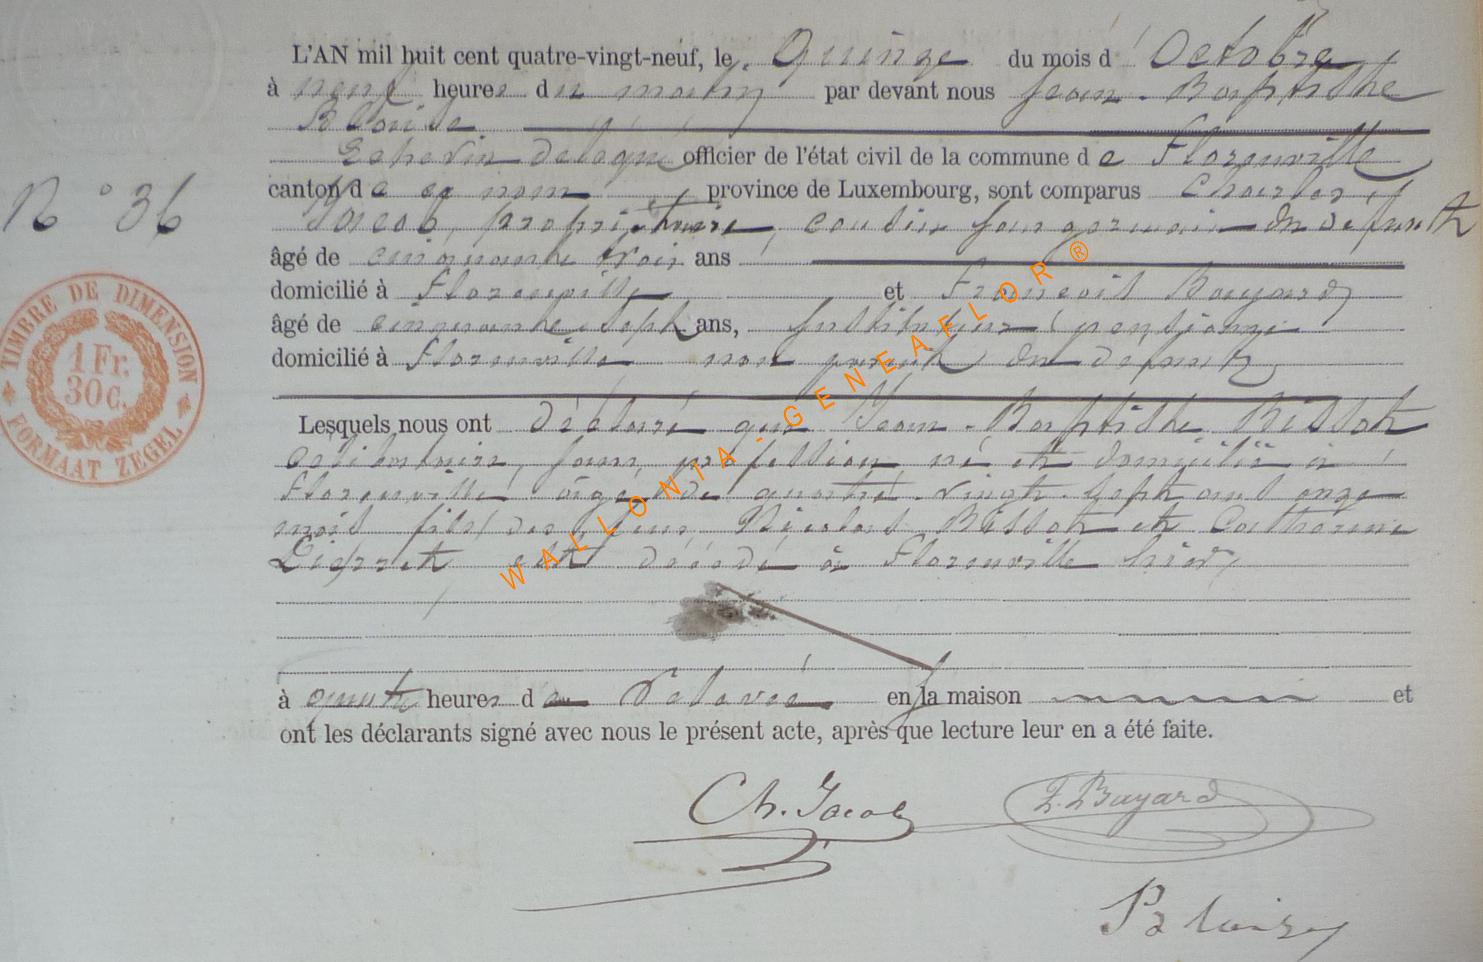 L'AN mil huit cent quatre-vingt-neuf, le Quinze du mois d' Octobre
à neuf heures du matin par devant nous Jean-Baptiste
Echevin délégué officier de l'état civil de la commune de Florenville
canton de ce nom, province de Luxembourg, sont comparus Charles
N° 36
Jacob, propriétaire, cousin sous germain du défunt
âgé de cinquante trois ans
domicilié à Florenville et François Bayard
âgé de cinquante sept ans, Instituteur pensionné
domicilié à Florenville non parent du defunt
Lesquels nous ont déclaré que Jean-Baptiste Bissot
célibataire, sans profession, né et domicilié à
Florenville âgé de quatre-vingt-sept ans onze
mois fils des feus Nicolas Bissot et Catherine
est décédé à Florenville hier,
à heures d en sa maison et
ont les déclarants signé avec nous le présent acte, après que lecture leur en a été faite.
Ch. Jacob F. Bayard
TIMBRE DE DIMENSION
1 Fr.
30 c.
FORMAAT ZEGEL
WALLONIA-GENEAFLOR®